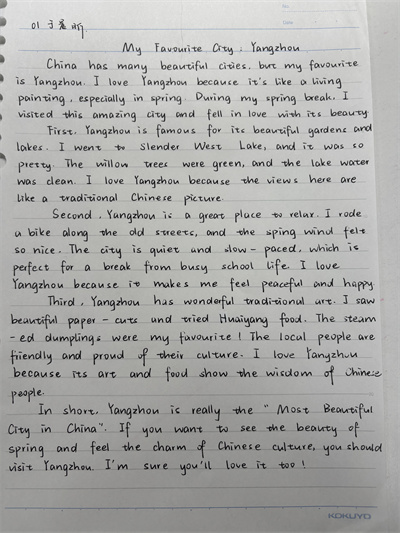 01 于嘉昕
My Favourite City: Yangzhou
China has many beautiful cities, but my favourite
is Yangzhou. I love Yangzhou because it's like a living
painting, especially in spring. During my spring break, I
visited this amazing city and fell in love with its beauty
First, Yangzhou is famous for its beautiful gardens and
lakes. I went to Slender West Lake, and it was so
pretty. The willow trees were green, and the lake water
was clean. I love Yangzhou because the views here are
like a traditional Chinese picture.
Second, Yangzhou is a great place to relax. I rode
a bike along the old streets, and the sping wind felt
so nice. The city is quiet and slow-paced, which is
perfect for a break from busy school life. I love
Yangzhou because it makes me feel peaceful and happy
Third, Yangzhou has wonderful traditional art. I saw
beautiful paper-cuts and tried Huaiyang food. The steam
-ed dumplings were my favourite! The local people are
friendly and proud of their culture. I love Yangzhou
because its art and food show the wisdom of Chinese
people.
In short, Yangzhou is really the "Most Beautiful
City in China". If you want to see the beauty of
spring and feel the charm of Chinese culture, you should
visit Yangzhou. I'm sure you'll love it too!
KOKUYO